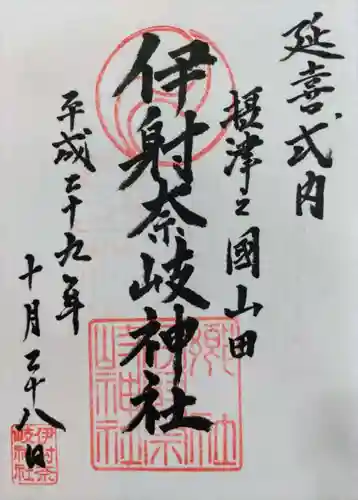 延喜式内
摂津之國山田
伊射奈岐神社
平成二十九年
十月二十八日
伊射奈
岐神社